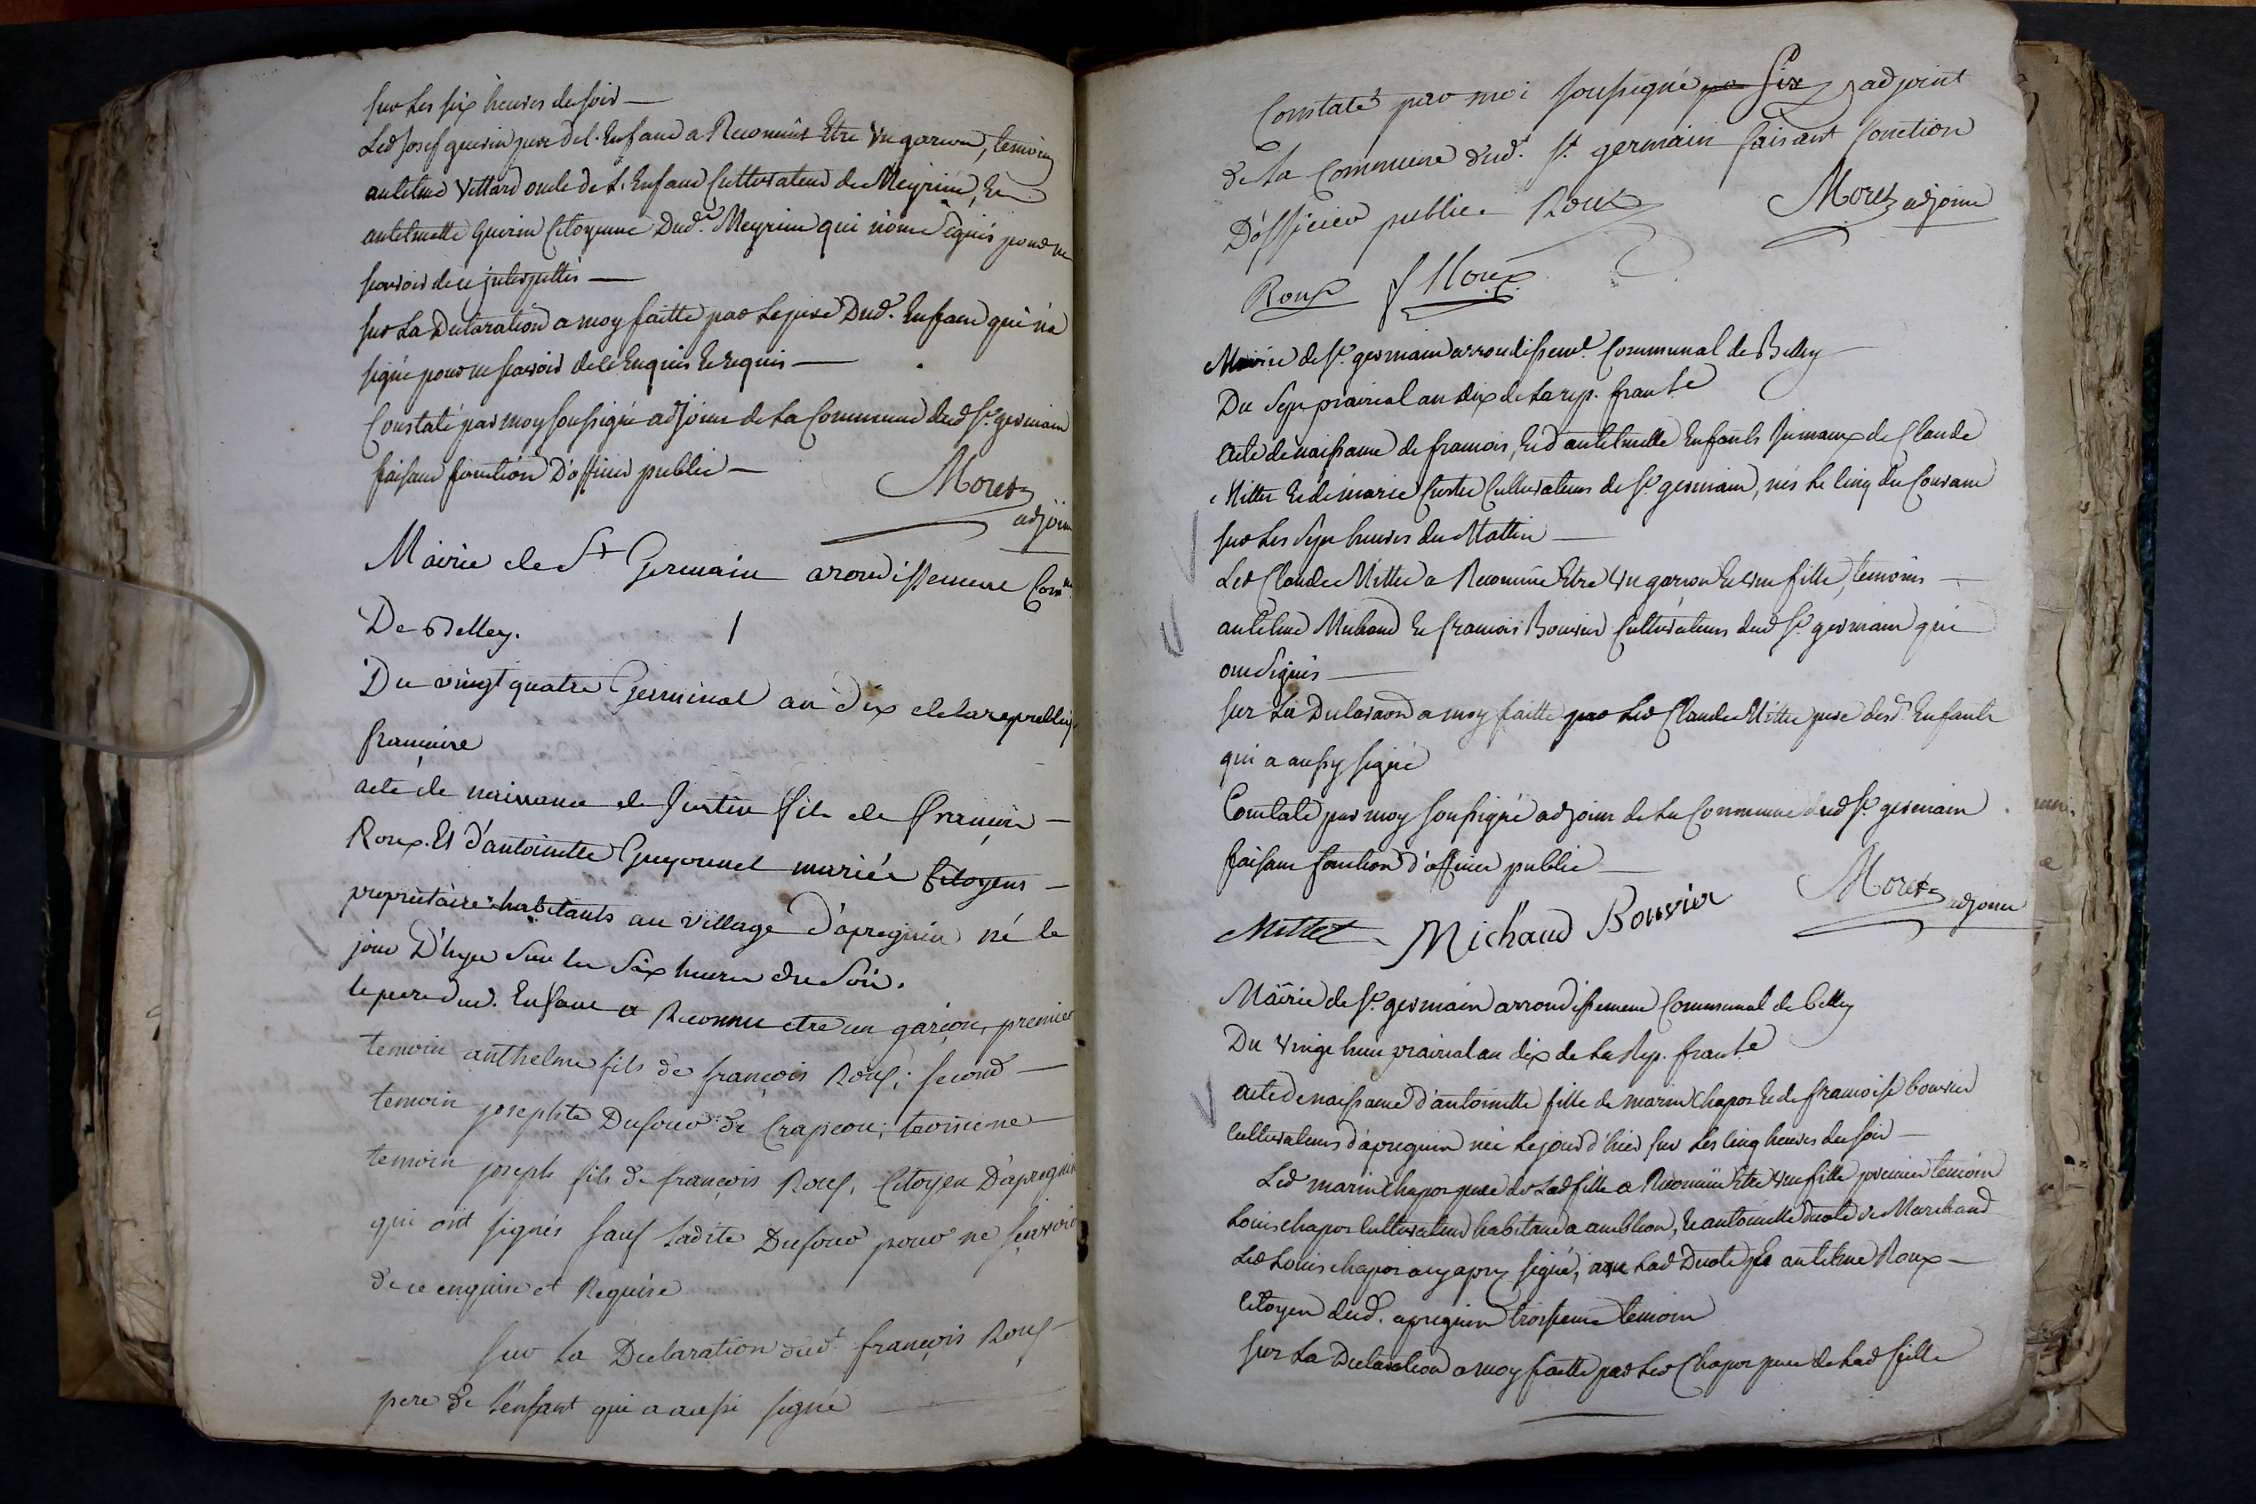 sur les six heures du soir —
Led Josef guerin pere del. Enfant a Reconnût Etre Un garcon, temoins
antelme Villard oncle de L. Enfant Cultivateur de Meyrieu, Et
antelmette Guerin Citoyenne Dud. Meyrieu qui n'ont signés pour ne
scavoir de ce interpellés —
sur La Declaration a moy faitte par Le pere Dud. Enfant qui n'a
signé pour ne scavoir de ce Enquis Et requis —
Constaté par moy soussigné adjoint de La Commune dud St. germain
faisant fonction D'officier public —
Moret
adjoint
Mairie de St Germain arondissement Com.
De Belley.
Du vingt quatre Germinal an Dix de la republiq
francaise
acte de naissance de Justin fils de francois —
Roux. Et d'antoinette Guyonnet mariés Citoyens —
proprietaires habitants au village D'apregnin né le
jour D'hyer Sur les Six heures du Soir.
le pere dud. Enfant a Reconnu etre un garçon, premier
temoin anthelme fils de françois Roux; second —
temoin josephte Dufour de Crapeou; troisieme
temoin joseph fils de françois Roux, Citoyen D'apregnin
qui ont signés sauf Ladite Dufour pour ne scavoir
de ce enquise et Requise
sur La Declaration dud.t françois Roux
pere de L'enfant qui a aussi signé
Constaté par moi soussigné adjoint
de La Commune dud.t St. germain faisant fonction
D'officier public. Roux
Moret adjoint
Roux J Roux
Mairie de St. germain arrondissemt. Communal de Belley
Du Sept prairial an dix de La rep. franc.se
Acte de naissance de francois, Et d'antelmette Enfants Jumeaux de Claude
Mittet Et de marie Cultivateurs de St. germain, nés Le Cinq du Courant
sur Les Sept heures du Mattin —
Led Claude Mittet a Reconnût Etre Un garcon Et Une fille, temoins —
antelme Michaud Et francois Bouvier Cultivateurs dud St. germain qui
ont Signés —
sur La Declaraon a moy faitte par Led Claude Mittet pere desd. Enfants
qui a aussy signé
Constaté par moy soussigné adjoint de La Commune dud St. germain
faisant fonction d'officier public —
Moret adjoint
Mittet Michaud Bouvier
Mairie de St. germain arrondissement Communal de belley
Du Vingt huit prairial an dix de La Rep. franc.se
Acte de naissance d'antoinette fille de marin Chapot Et de francoise bouvier
Cultivateurs d'apregnin née Le jour d'hier sur Les Cinq heures du soir —
Led marin Chapot pere de Lad fille a Reconnût Etre Une fille premier temoin
Louis Chapot Cultivateur habitant a , Et antoinette de Marchand
Led Louis Chapot a cy apres signé, non Lad Et antelme Roux —
Citoyen dud. apregnin troisieme temoin
sur La Declaration a moy faitte par Led Chapot pere de Lad fille